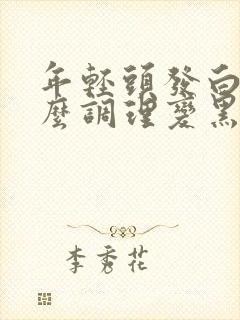 年輕頭發白
麼調理變黑
李秀花